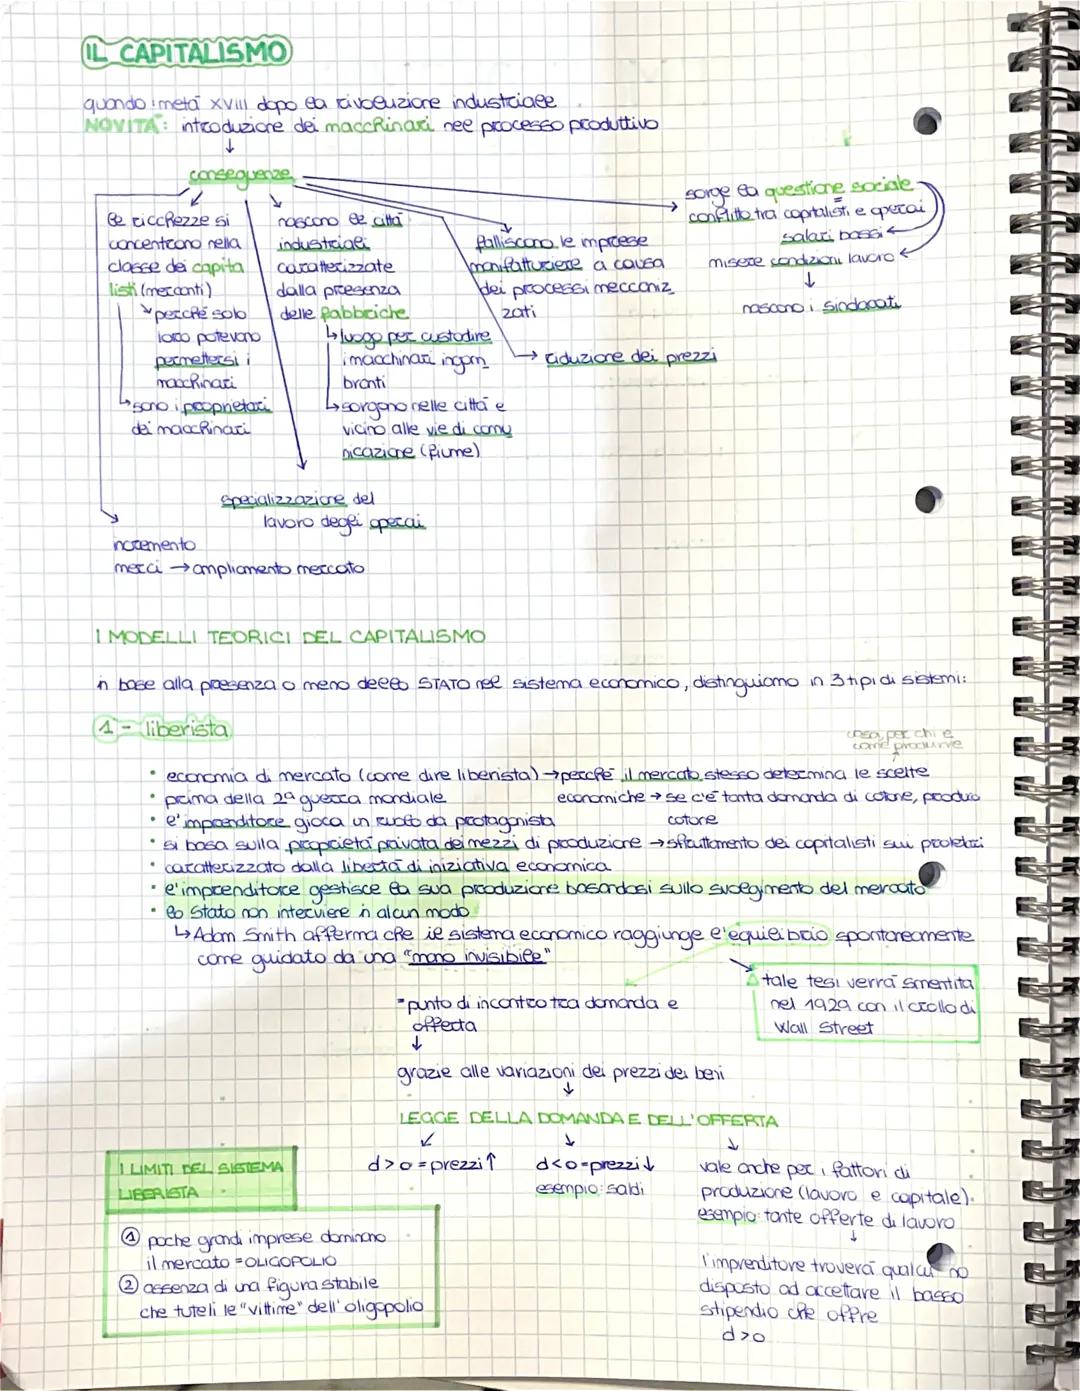 IL CAPITALISMO
quando: metà XVIII dopo la rivoluzione industriale
NOVITÀ: introduzione dei macchinari nel processo produttivo
↓
conseguenze
le ricchezze si
concentrano nella
classe dei capita
listi (mercanti)
perché solo
loro potevano
permettersi i
macchinari
↳ sono i proprietari
dei macchinari
nascono le città
industriali
caratterizzate
dalla presenza
delle fabbriche
↳ luogo per custodire
i macchinari ingom
branti
↳ sorgono nelle città e
vicino alle vie di comu
nicazione (fiume)
falliscono le imprese
manifatturiere a causa
dei processi meccaniz
zati
→ riduzione dei prezzi
sorge la questione sociale
conflitto tra capitalisti e operai
salari bassi
misere condizioni lavoro
↓
nascono i sindacati
specializzazione del
lavoro degli operai
incremento
merci → ampliamento mercato
I MODELLI TEORICI DEL CAPITALISMO
in base alla presenza o meno dello STATO nel sistema economico, distinguiamo in 3 tipi di sistemi:
1 - liberista
cosa, per chi e
come produrre
• economia di mercato (come dire liberista) → perché il mercato stesso determina le scelte
economiche → se c'è tanta domanda di cotone, produrrò
cotone
• prima della 2ª guerra mondiale
• l'imprenditore gioca un ruolo da protagonista
• si basa sulla proprietà privata dei mezzi di produzione → sfruttamento dei capitalisti sui proletari
• caratterizzato dalla libertà di iniziativa economica
• l'imprenditore gestisce la sua produzione basandosi sullo svolgimento del mercato
• lo Stato non interviene in alcun modo
↳ Adam Smith afferma che il sistema economico raggiunge l'equilibrio spontaneamente
come guidato da una "mano invisibile"
tale tesi verrà smentita
nel 1929 con il crollo di
Wall Street
= punto di incontro tra domanda e
offerta
↓
grazie alle variazioni dei prezzi dei beni
↓
LEGGE DELLA DOMANDA E DELL'OFFERTA
d>o = prezzi↑
d<o = prezzi↓
esempio: saldi
vale anche per i fattori di
produzione (lavoro e capitale).
esempio: tante offerte di lavoro
↓
l'imprenditore troverà qualcuno
disposto ad accettare il basso
stipendio che offre
d>o
I LIMITI DEL SISTEMA
LIBERISTA
① poche grandi imprese dominano
il mercato = OLIGOPOLIO
② assenza di una figura stabile
che tuteli le "vittime" dell'oligopolio